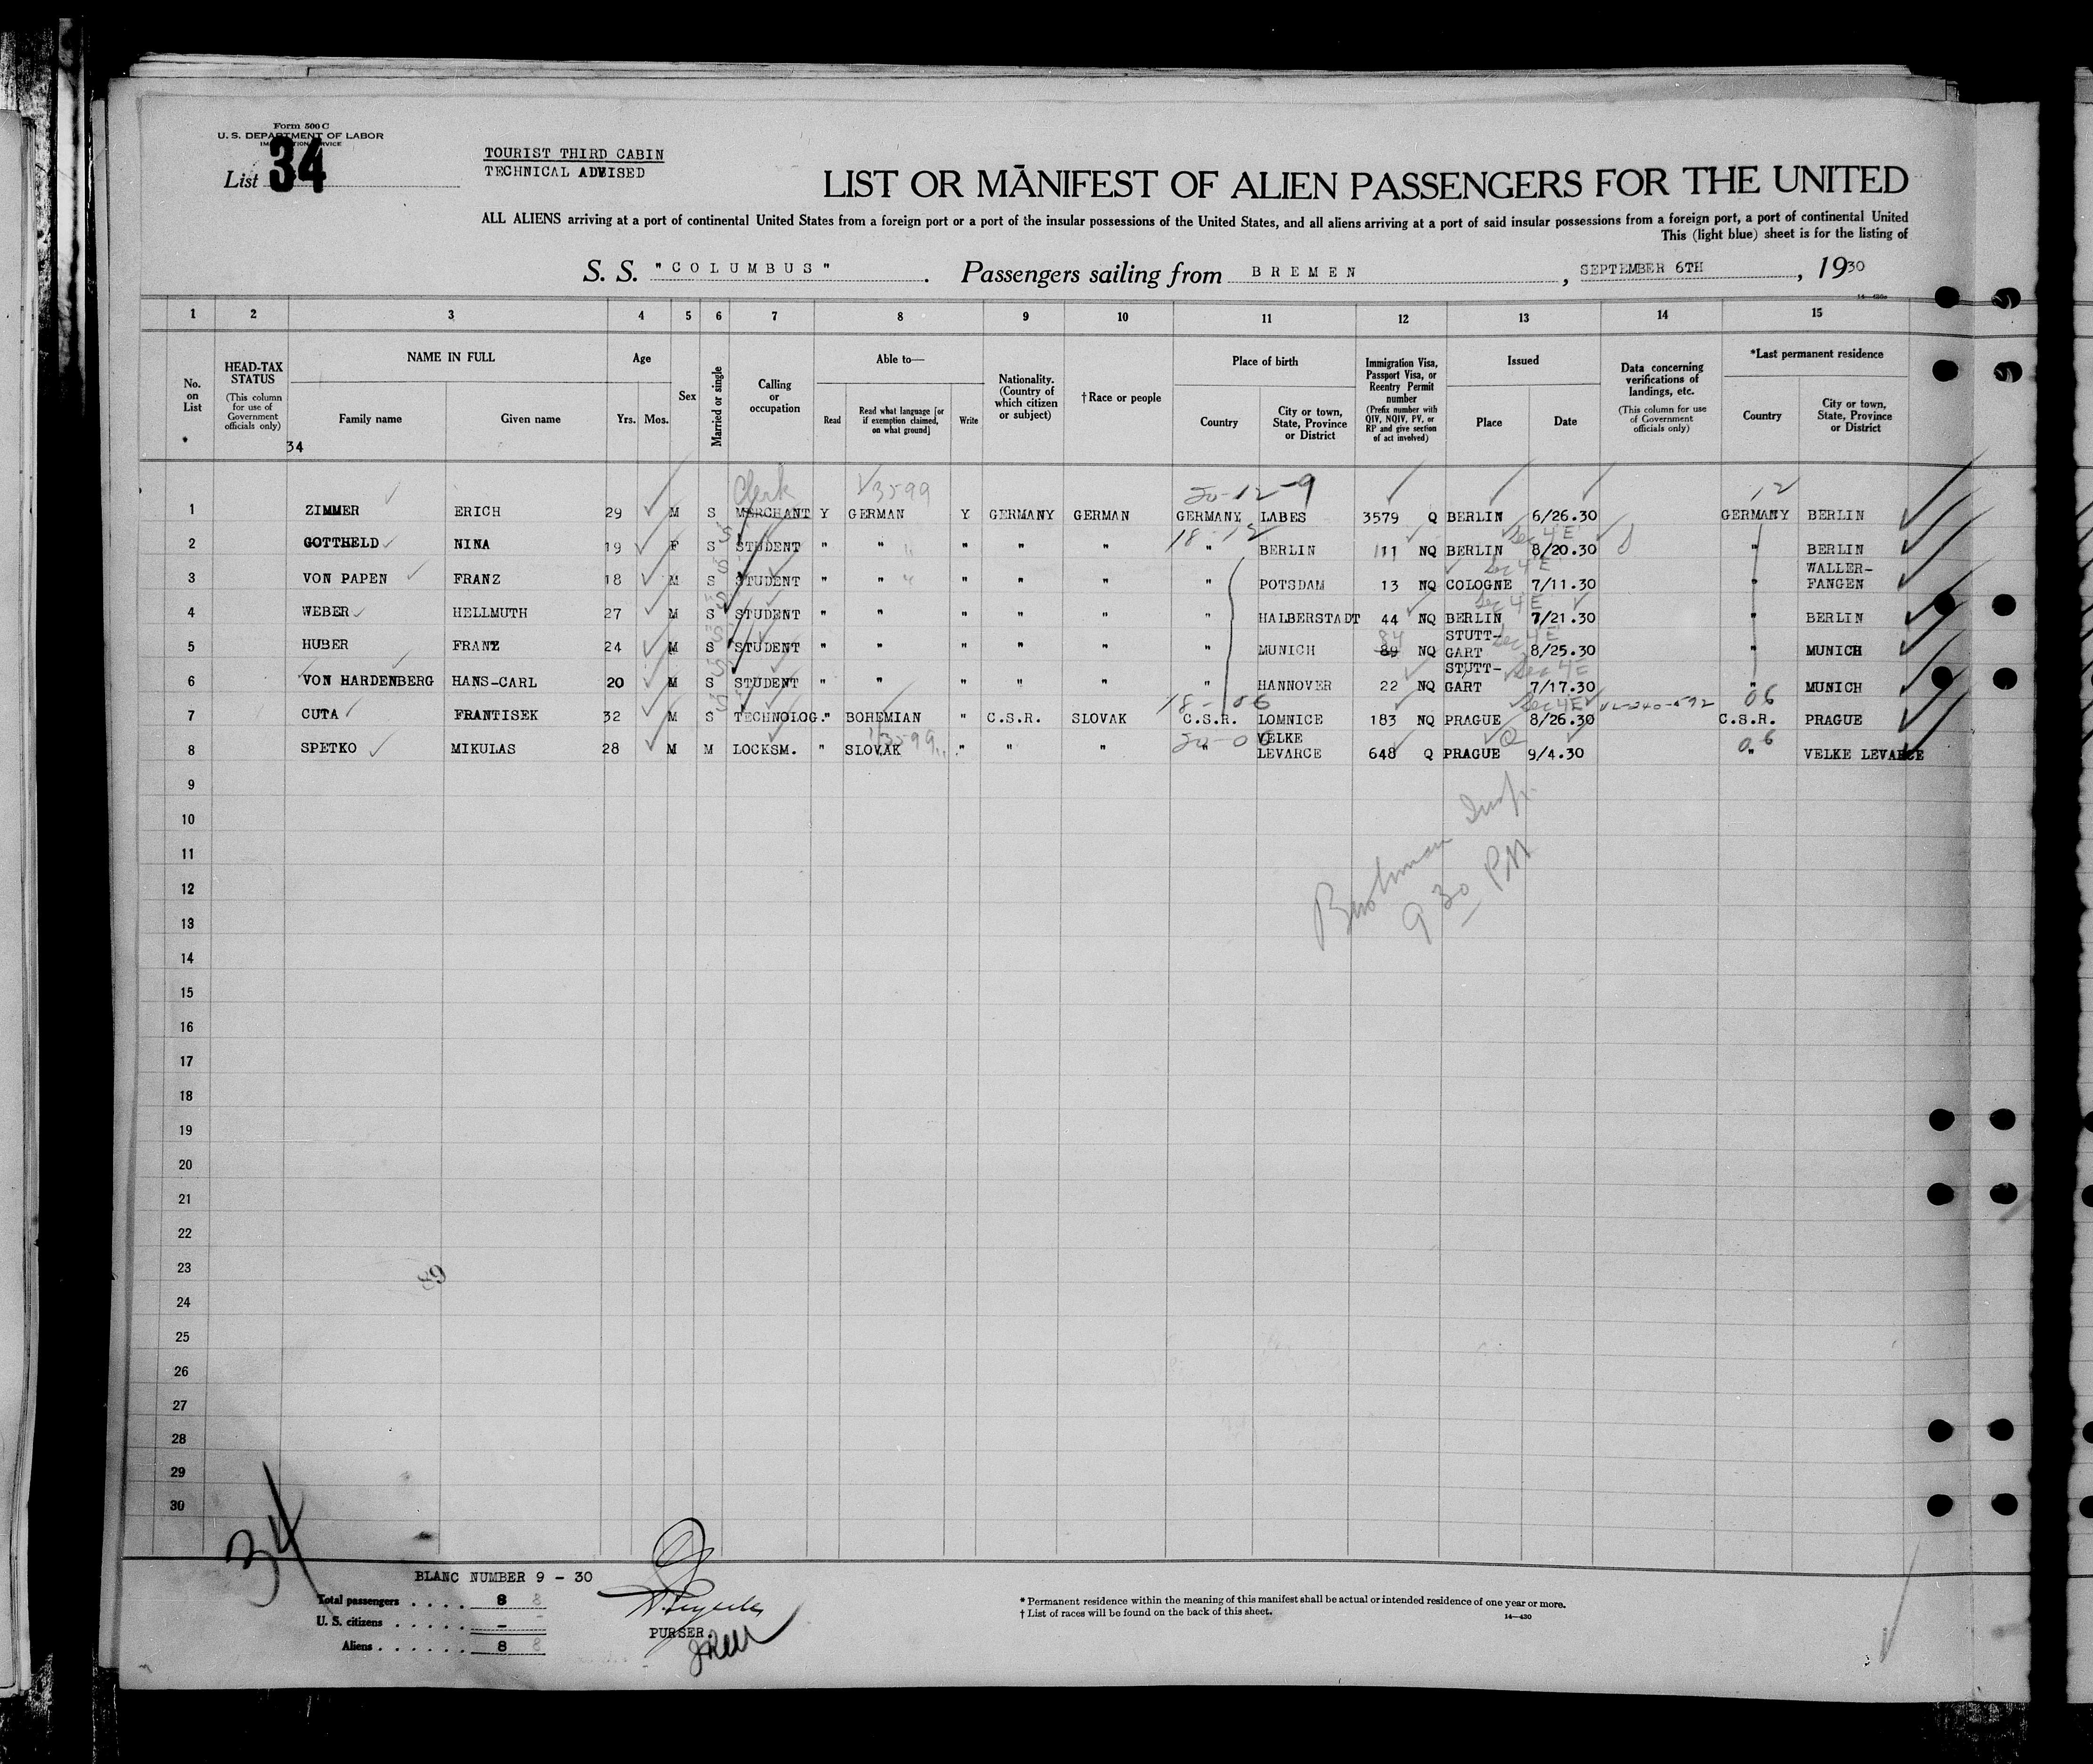 Form 500 C
U. S. DEPARTMENT OF LABOR
List 34
TOURIST THIRD CABIN
TECHNICAL ADVISED
LIST OR MANIFEST OF ALIEN PASSENGERS FOR THE UNITED
ALL ALIENS arriving at a port of continental United States from a foreign port or a port of the insular possessions of the United States, and all aliens arriving at a port of said insular possessions from a foreign port, a port of continental United
This (light blue) sheet is for the listing of
S. S. "COLUMBUS". Passengers sailing from BREMEN, SEPTEMBER 6TH, 1930
1 2 3 4 5 6 7 8 9 10 11 12 13 14 15
No. on List
HEAD-TAX STATUS (This column for use of Government officials only)
NAME IN FULL
Family name Given name
34
Age
Yrs. Mos.
Sex
Married or single
Calling or occupation
Able to—
Read
Read what language [or if exemption claimed, on what ground]
Write
Nationality. (Country of which citizen or subject)
†Race or people
Place of birth
Country
City or town, State, Province or District
Immigration Visa, Passport Visa, or Reentry Permit number (Prefix number with QIV, NQIV, PV, or RP and give section of act involved)
Issued
Place Date
Data concerning verifications of landings, etc. (This column for use of Government officials only)
*Last permanent residence
Country
City or town, State, Province or District
Clerk 3599 20-12-9 12
1 ZIMMER ERICH 29 M S MERCHANT Y GERMAN Y GERMANY GERMAN GERMANY LABES 3579 Q BERLIN 6/26.30 GERMANY BERLIN
18-12 Sec 4 E
2 GOTTHELD NINA 19 F S STUDENT " " " " " " BERLIN 111 NQ BERLIN 8/20.30 " BERLIN
Sec 4 E
3 VON PAPEN FRANZ 18 M S STUDENT " " " " " " POTSDAM 13 NQ COLOGNE 7/11.30 " WALLER-FANGEN
Sec 4 E
4 WEBER HELLMUTH 27 M S STUDENT " " " " " " HALBERSTADT 44 NQ BERLIN 7/21.30 " BERLIN
84 Sec 4 E
5 HUBER FRANZ 24 M S STUDENT " " " " " " MUNICH 89 NQ STUTT-GART 8/25.30 " MUNICH
Sec 4 E
6 VON HARDENBERG HANS-CARL 20 M S STUDENT " " " " " " HANNOVER 22 NQ STUTT-GART 7/17.30 " MUNICH
18-06 Sec 4 E 06
7 CUTA FRANTISEK 32 M S TECHNOLOG. " BOHEMIAN " C.S.R. SLOVAK C.S.R. LOMNICE 183 NQ PRAGUE 8/26.30 C.S.R. PRAGUE
3599 20-06 Q 06
8 SPETKO MIKULAS 28 M M LOCKSM. " SLOVAK " " " " VELKE LEVARCE 648 Q PRAGUE 9/4.30 " VELKE LEVARCE
9
10
11
12
13
14
15
16
17
18
19
20
21
22
23
24
25
26
27
28
29
30
Insp.
9 30 PM
89
34
BLANC NUMBER 9 - 30
Total passengers . . . . 8 8
U. S. citizens . . . . . . - -
Aliens . . . . . . 8 8
PURSER.
* Permanent residence within the meaning of this manifest shall be actual or intended residence of one year or more.
† List of races will be found on the back of this sheet.
14—430